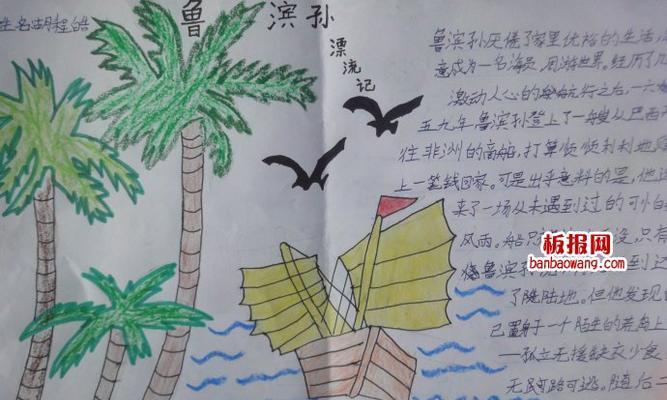 生名胡程皓
鲁滨孙
漂流记
鲁滨孙厌倦了家里优裕的生活,
意成为一名海员,周游世界。经历了几
激动人心的航行之后,一六
五九年鲁滨孙登上了一艘从巴西
往非洲的商船,打算顺顺利利地
上一笔钱回家。可是出乎意料的是,他
来了一场从未遇到过的可怕
风雨。船只 没,只有
鲁滨孙 到
了陆地。但他发现
已置身于一个陌生的荒岛上
—孤立无援缺衣少食
无路可逃。随后二
板报网
banbaowang.com